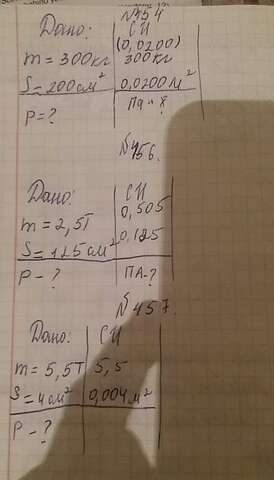 №454
Дано: СИ
(0,0200)
m = 300кг 300кг
S = 200см² 0,0200м²
P = ? Па - ?
№456.
Дано: СИ
m = 2,5т 0,505
S = 125см² 0,125
P - ? ПА - ?
№457.
Дано: СИ
m = 5,5т 5,5
S = 4см² 0,004м²
P - ?